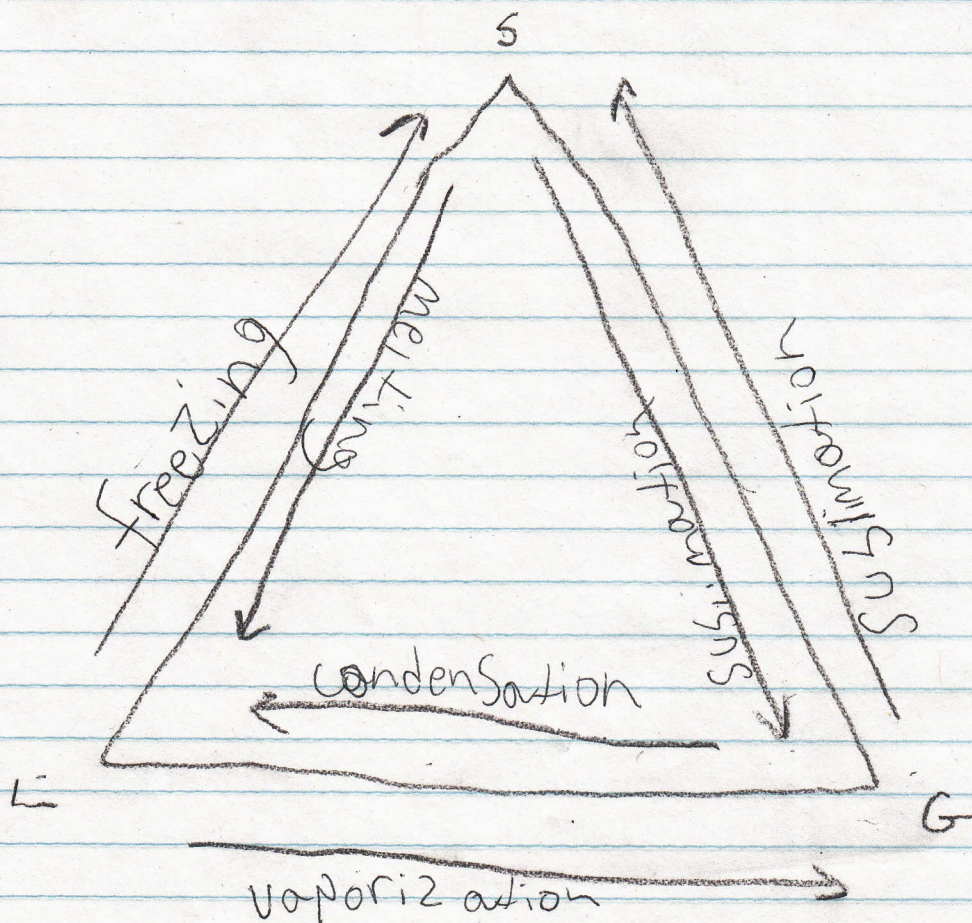 S
freezing
melting
sublimation
condensation
L
G
vaporization